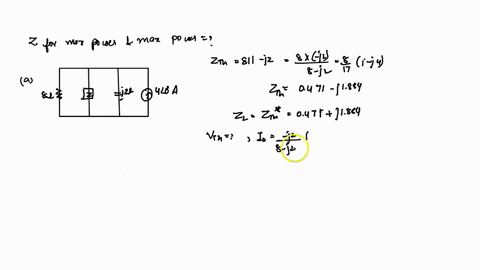 Z for max power & max power =?
(a)
8Ω
Z
-j2Ω
4∠0 A
Z_Th = 8||-j2 = 8×(-j2)/8-j2 = 8/17 (1-j4)
Z_Th = 0.471 - j1.884
Z_L = Z_Th* = 0.471 + j1.884
V_Th = ? , I_0 = -j2/8-j2 (